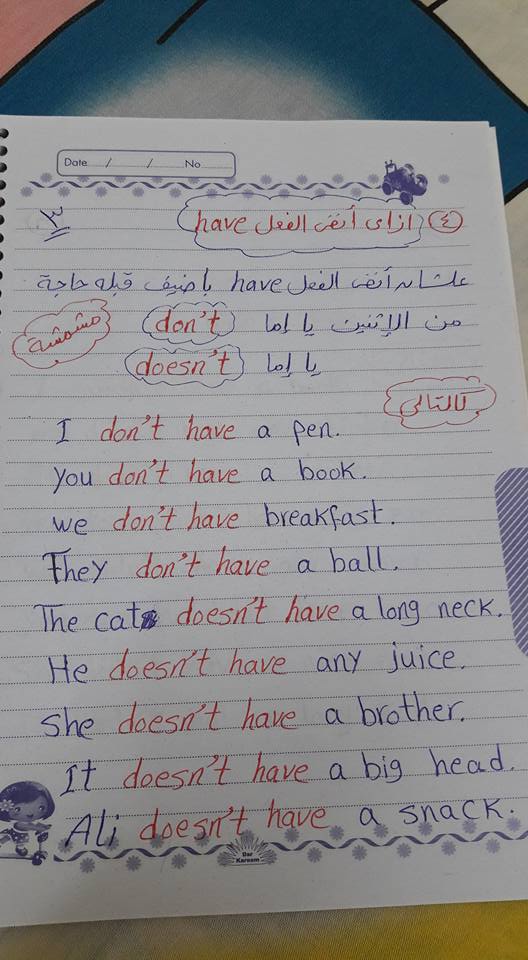 Date / / No
٣
④ ازاى أنفى الفعل have
علشان أنفى الفعل have بأضيف قبله حاجة
من الإثنين يا إما don't
يا إما doesn't
كالتالى
I don't have a pen.
You don't have a book.
we don't have breakfast.
They don't have a ball.
The cat doesn't have a long neck.
He doesn't have any juice.
She doesn't have a brother.
It doesn't have a big head.
Ali doesn't have a snack.
Dar
Kareem